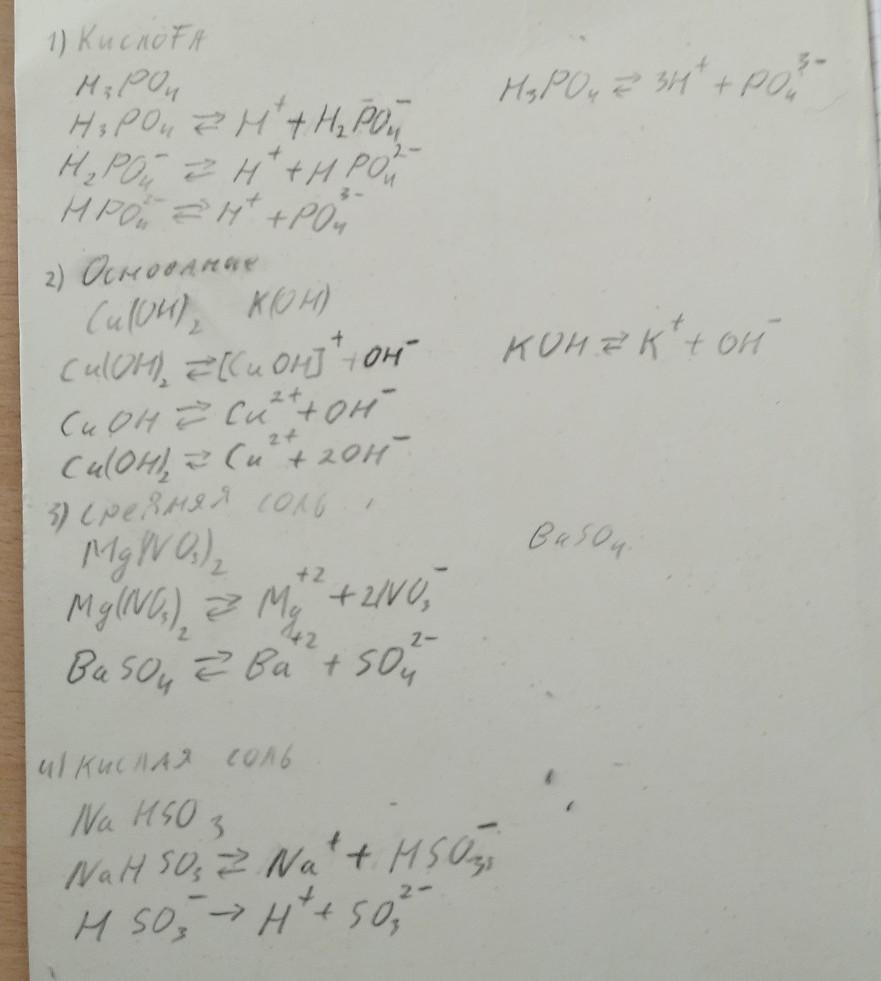 1) Кислота
H₃PO₄
H₃PO₄ ⇄ 3H⁺ + PO₄³⁻
H₃PO₄ ⇄ H⁺ + H₂PO₄⁻
H₂PO₄⁻ ⇄ H⁺ + HPO₄²⁻
HPO₄²⁻ ⇄ H⁺ + PO₄³⁻
2) Основание
Cu(OH)₂ K(OH)
Cu(OH)₂ ⇄ [CuOH]⁺ + OH⁻
KOH ⇄ K⁺ + OH⁻
CuOH ⇄ Cu²⁺ + OH⁻
Cu(OH)₂ ⇄ Cu²⁺ + 2OH⁻
3) Средняя соль
BaSO₄
Mg(NO₃)₂
Mg(NO₃)₂ ⇄ Mg⁺² + 2NO₃⁻
BaSO₄ ⇄ Ba⁺² + SO₄²⁻
4) Кислая соль
NaHSO₃
NaHSO₃ ⇄ Na⁺ + HSO₃⁻
HSO₃⁻ → H⁺ + SO₃²⁻